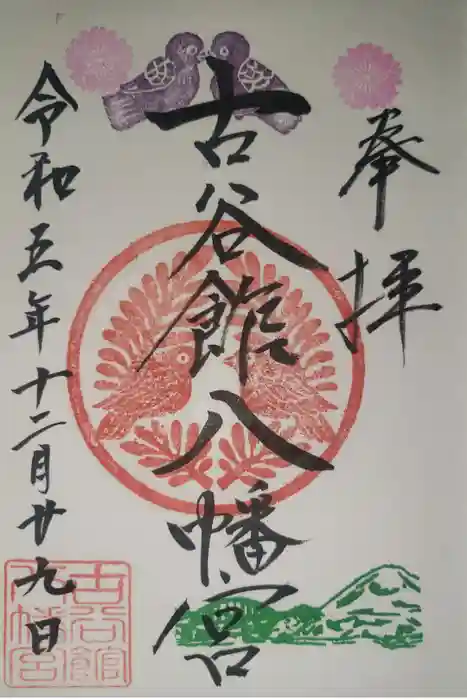 奉拝
古谷館八幡宮
令和五年十二月廿九日
古谷館八幡宮